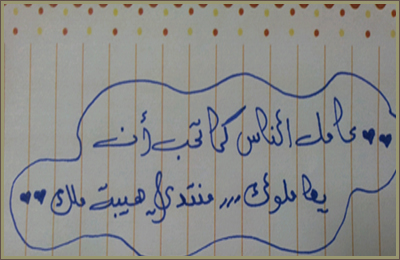 عامل الناس كما تحب أن
يعاملوك ,,, منتدى هيبة ملك